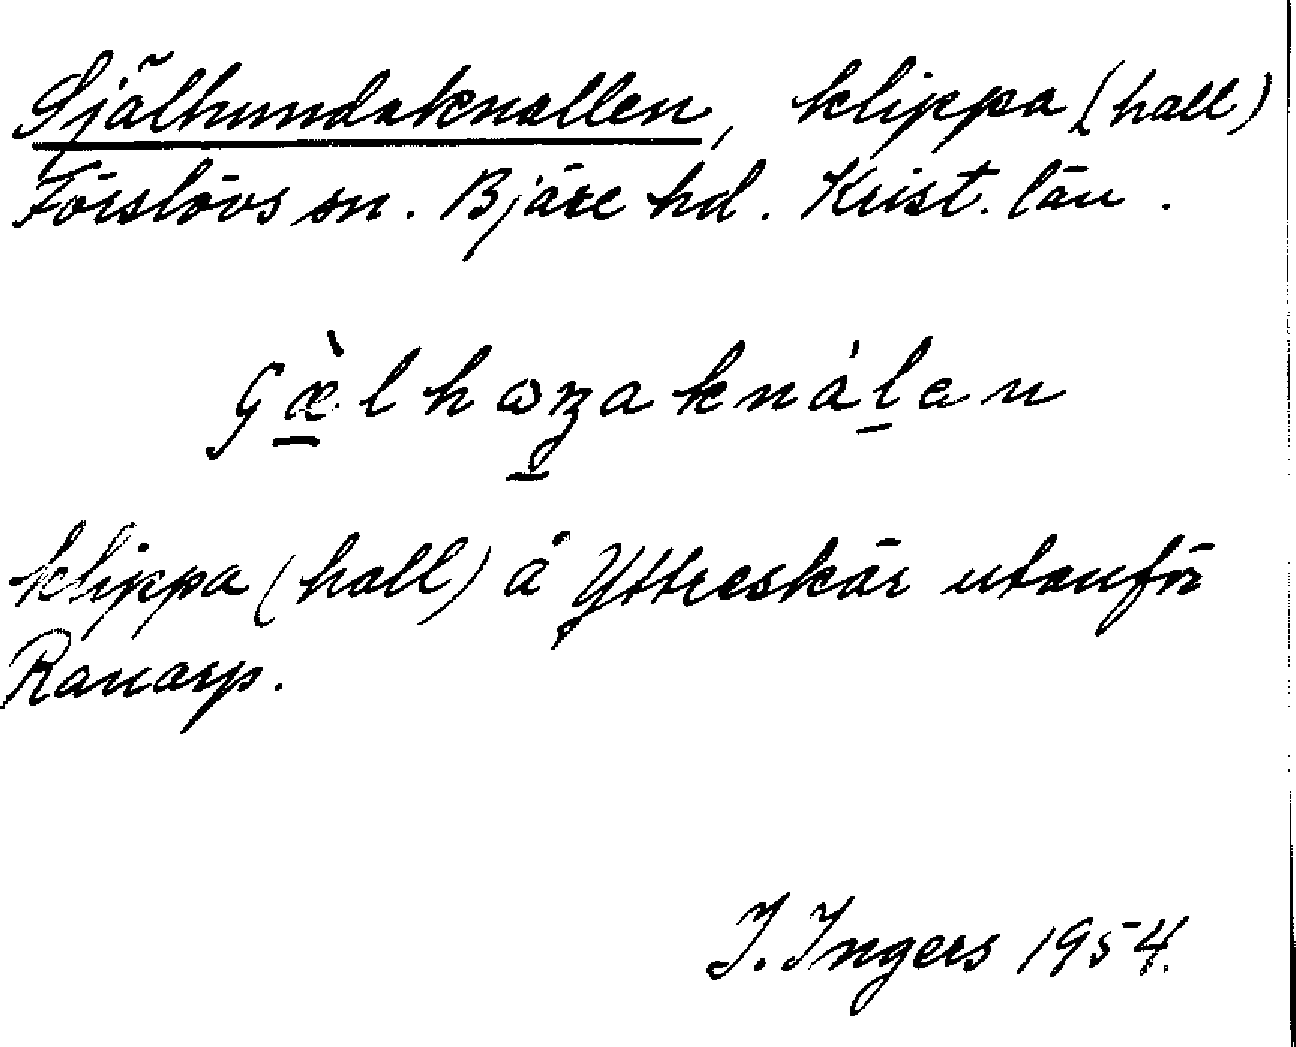 Själhundaknallen, klippa (hall)
Förslövs sn. Bjäre hd. Krist. län.
klippa (hall) å Ytteskär utanför
Ranarp.
I. Ingers 1954.